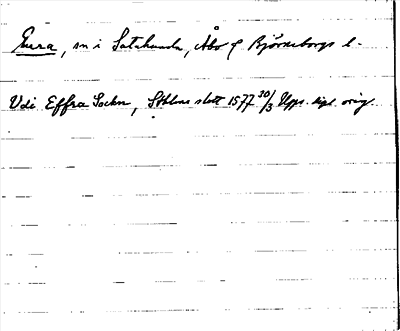 Eura, sn i Satakunda, Åbo o Björneborgs l.
Udi Effra Sochn, Sthlms slott 1577 30/3 Upps. dipl. orig.